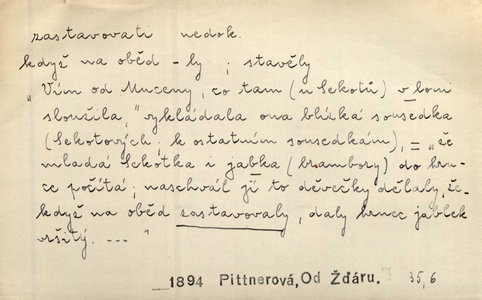 zastavovati nedok.
když na oběd -ly ; stavěly
„Vím od Muceny, co tam (u Sekotů) v loni
sloužila," vykládala ona blízká sousedka
(Sekotových k ostatním sousedkám), = „že
mladá Sekotka i jabka (brambory) do hrn-
ce počítá; naschvál jí to děvečky dělaly, že-
když na oběd zastavovaly, daly hrnec jablek
vršitý. --- "
1894 Pittnerová, Od Žďáru. 35,6